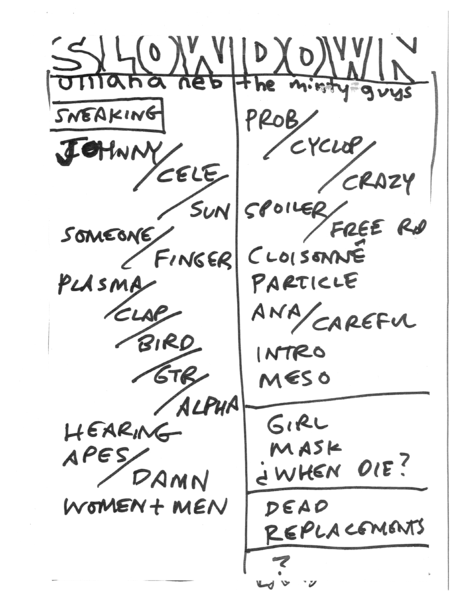 SLOWDOWN
omaha neb the minty guys
SNEAKING
JOHNNY/
CELE/
SUN
SOMEONE/
FINGER
PLASMA/
CLAP/
BIRD/
GTR/
ALPHA
HEARING
APES/
DAMN
WOMEN + MEN
PROB/
CYCLOP/
CRAZY
SPOILER/
FREE RD
CLOISONNÊ
PARTICLE
ANA/CAREFUL
INTRO
MESO
GIRL
MASK
¿WHEN DIE?
DEAD
REPLACEMENTS
?